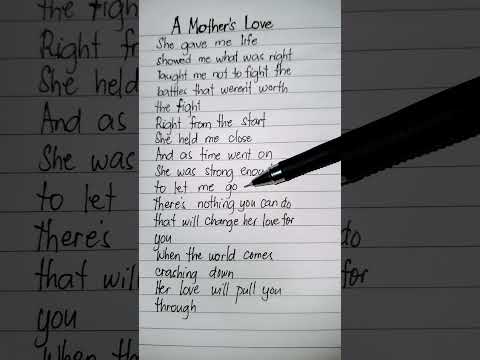 A Mother's Love
She gave me life
showed me what was right
Taught me not to fight the
battles that werent worth
the fight
Right from the start
She held me close
And as time went on
She was strong enough
to let me go
There's nothing you can do
that will change her love for
you
When the world comes
crashing down
Her love will pull you
through